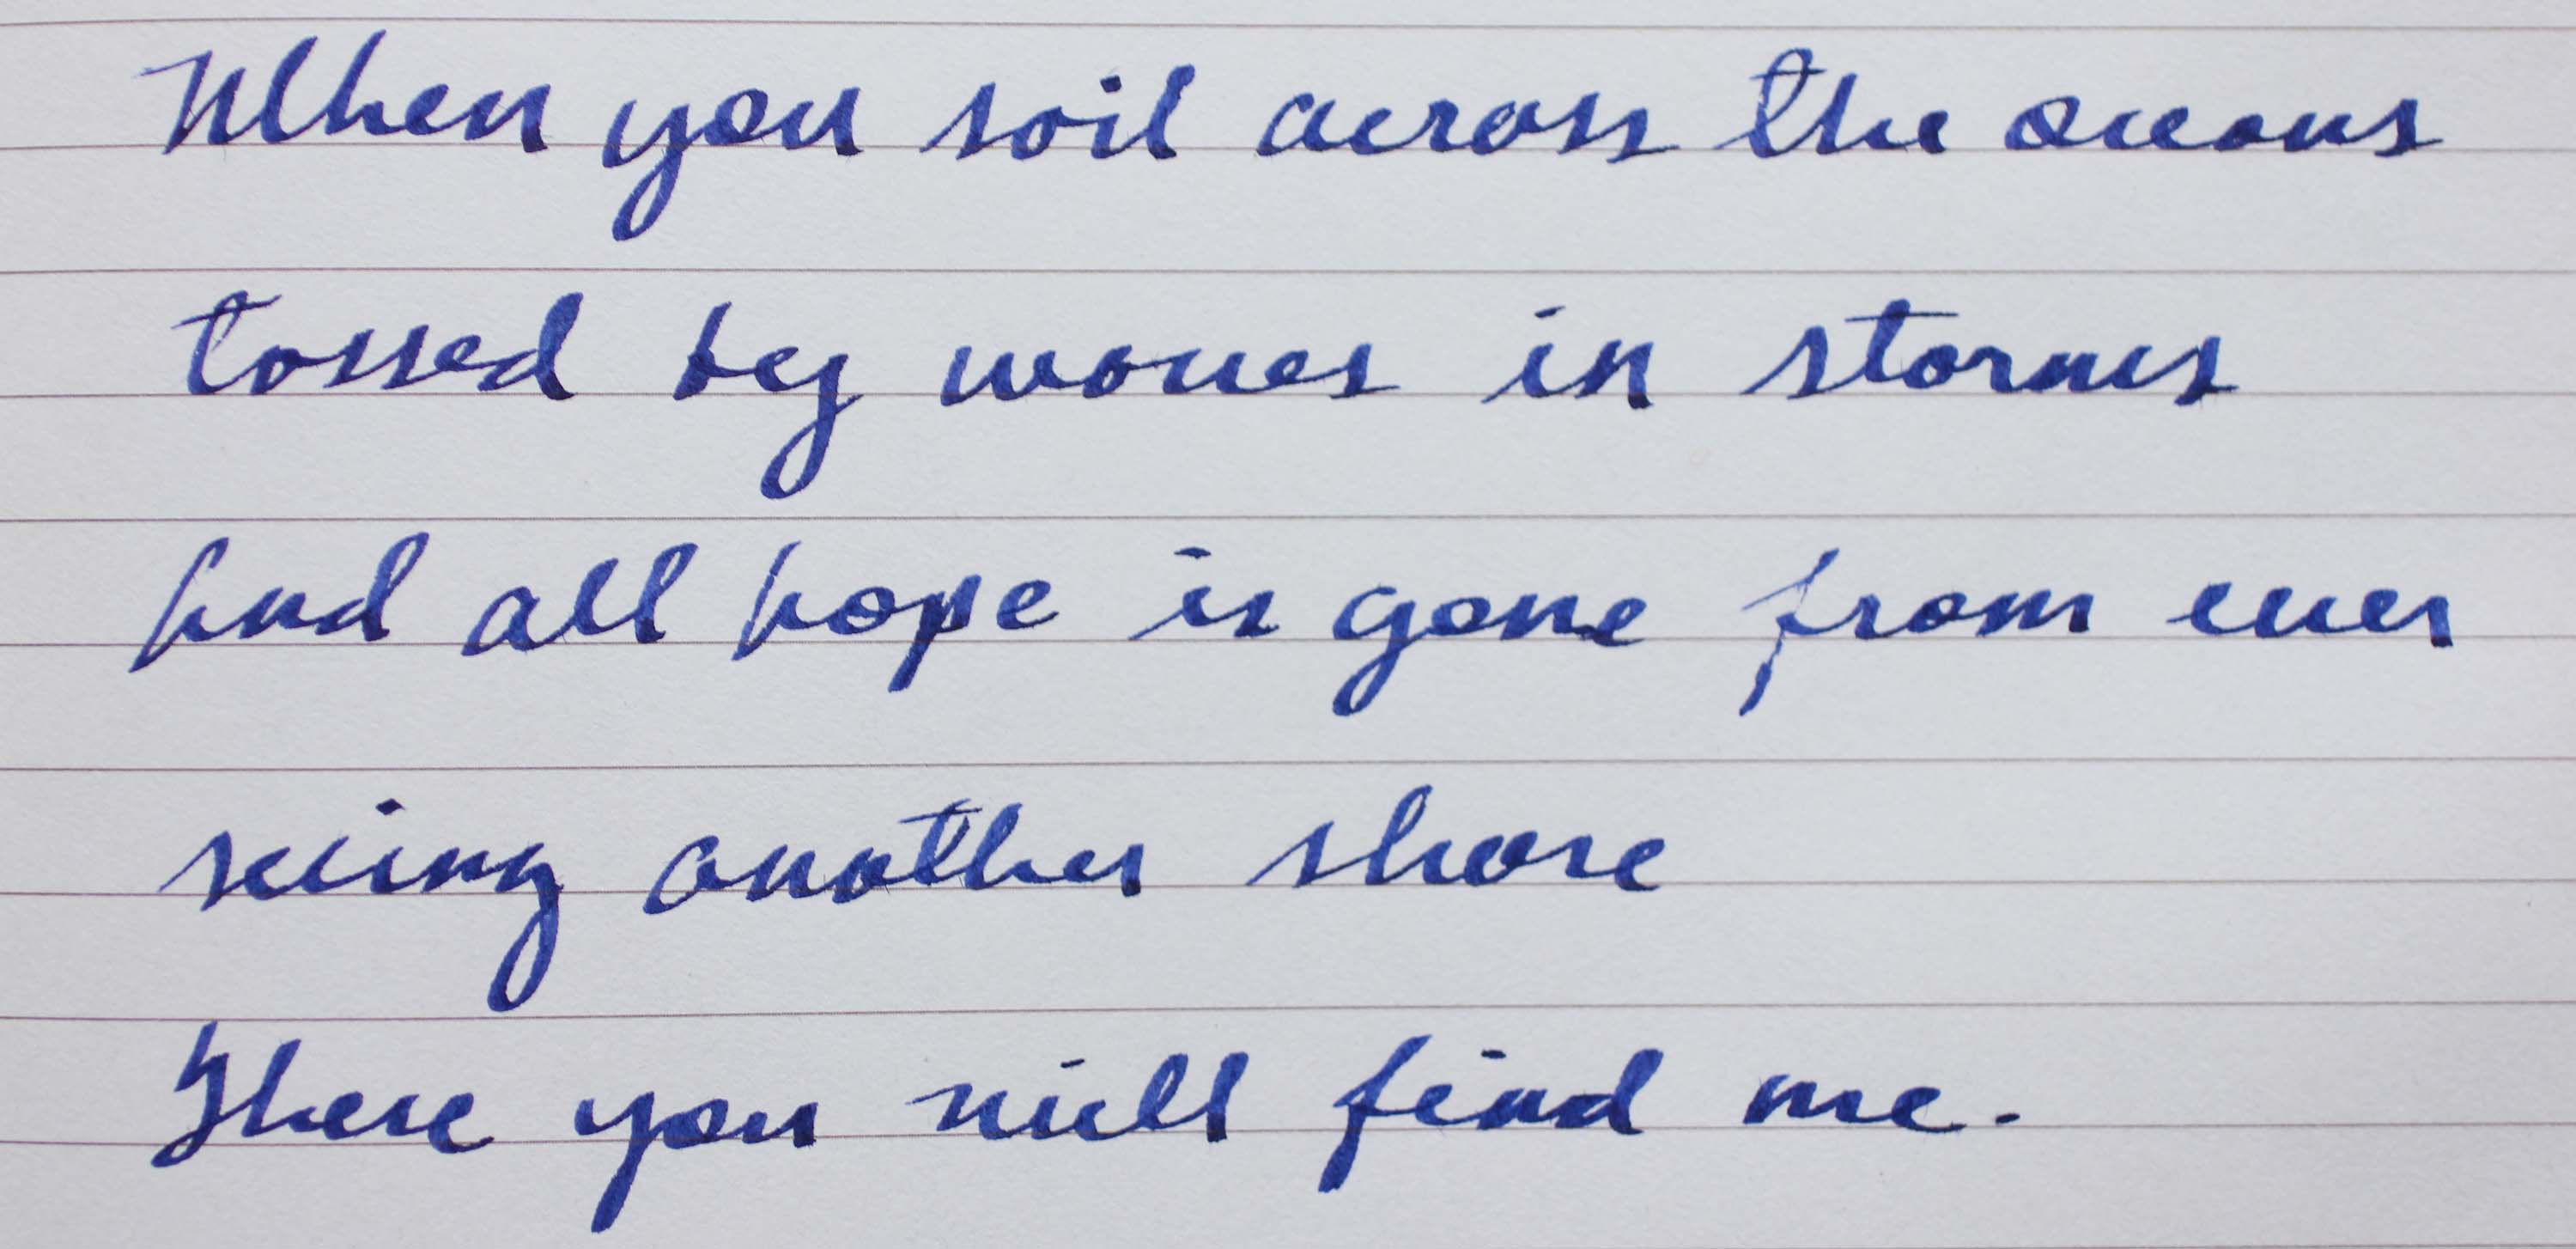 When you sail across the oceans
tossed by waves in storms
And all hope is gone from ever
seeing another shore
There you will find me.